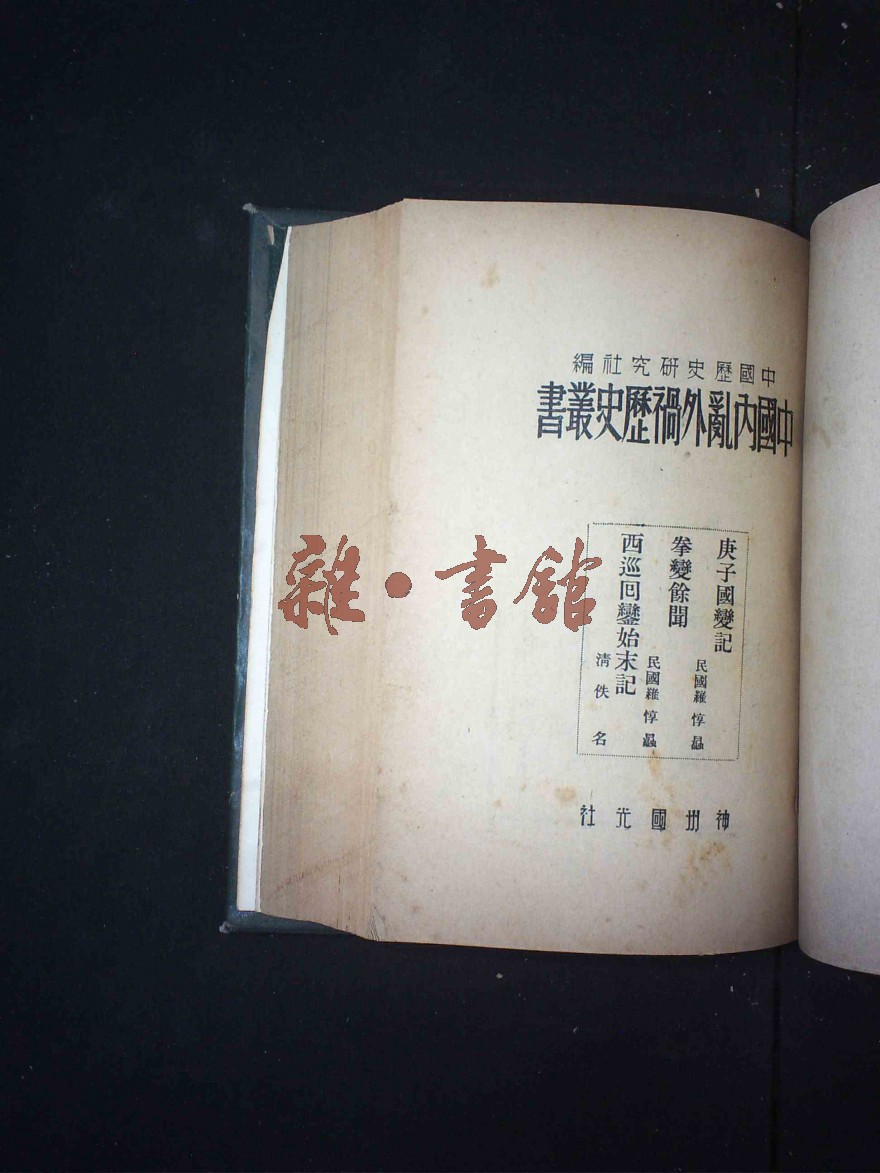 中國歷史研究社編
中國內亂外禍歷史叢書
庚子國變記
民國羅惇曧
拳變餘聞
民國羅惇曧
西巡回鑾始末記
清佚名
神州國光社
雜·書館